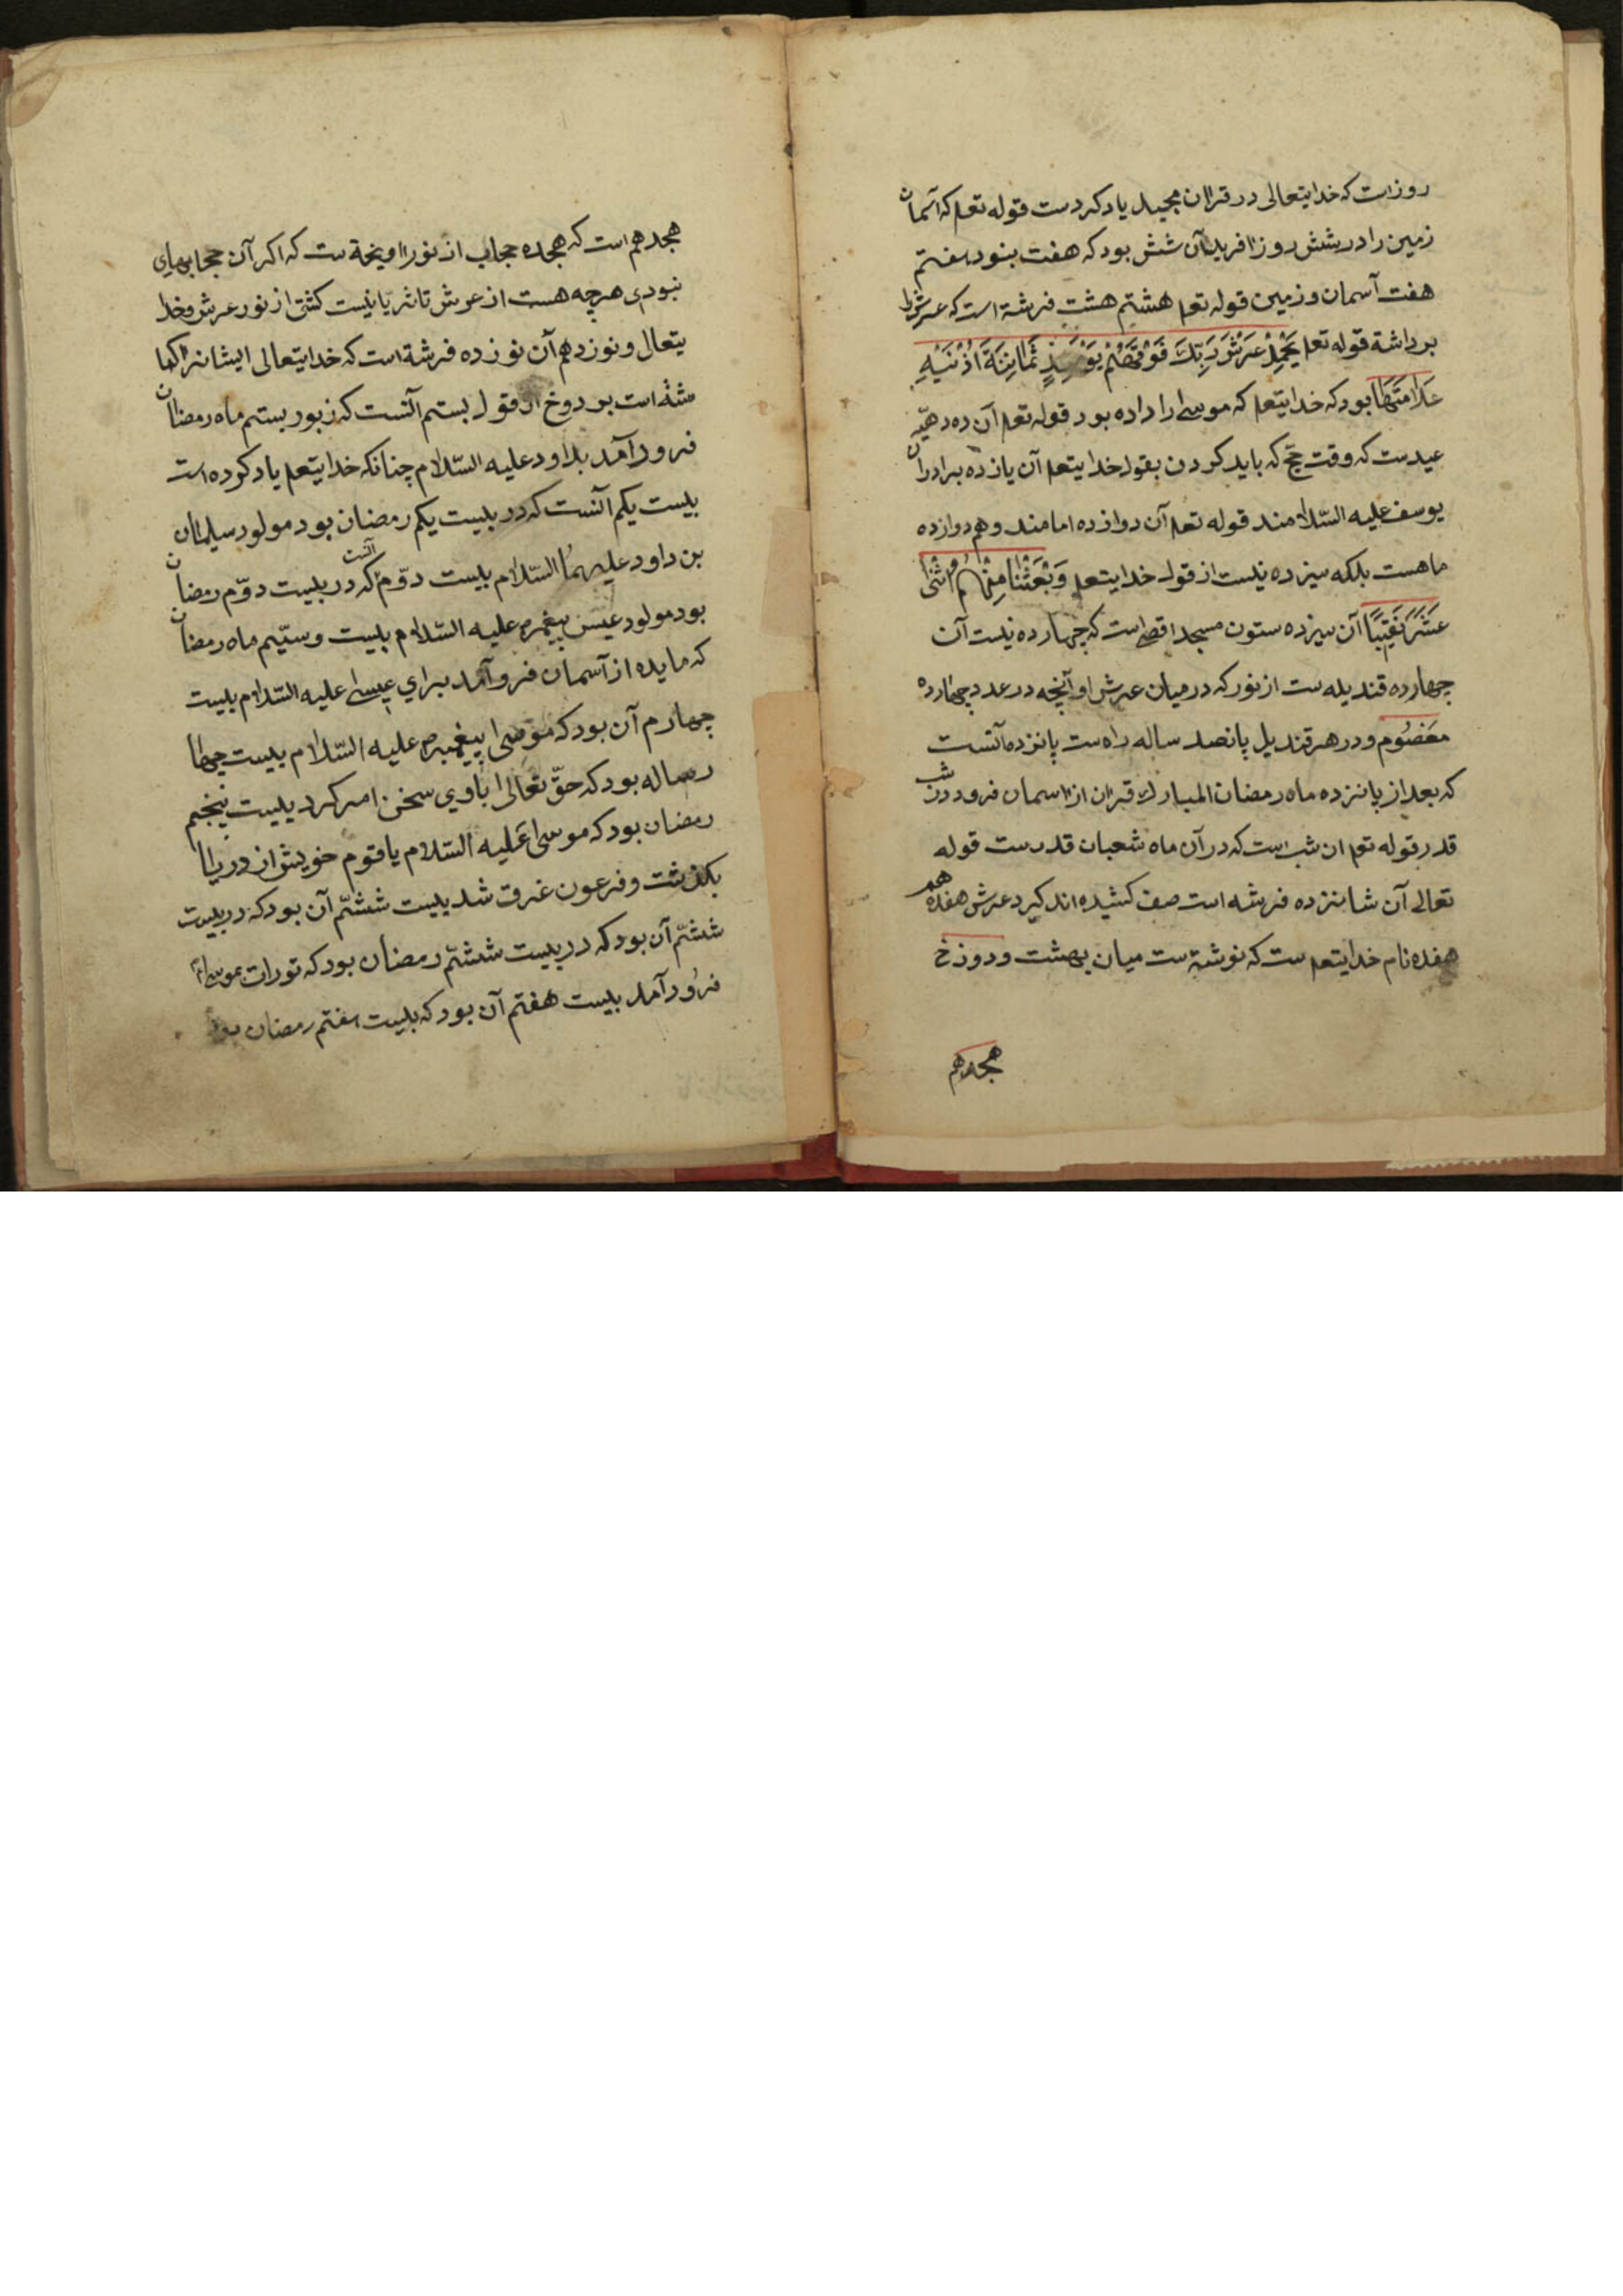 روزاست که خدایتعالی در قران مجید یاد کردست قوله تعه که آسمان
زمین را در شش روز افرید آن شش بود که هفت بنود هفتم
هفت آسمان و زمین قوله تعه هشتم هشت فرشة است که عرش را
برداشة قوله تعه یَحْمِلُ عَرْشَ رَبِّكَ فَوْقَهُمْ یَوْمَئِذٍ ثَمَانِیَةَ
بود که خدایتعه که موسی را داده بود قوله تعه آن ده
عیدست که وقت حجّ که باید کردن بقول خدایتعه آن یازده برادران
یوسف علیه السّلامند قوله تعه آن دوازده امامند وهم دوازده
ماهست بلکه سیزده نیست از قول خدایتعه وَبَعَثْنَا مِنْهُمُ اثْنَی
عَشَرَ نَقِیبًا آن سیزده ستون مسجد اقصی است که چهارده نیست آن
چهارده قندیله ست از نور که در میان عرش او آنچه در عدد چهارده
مَعَصُوم و در هر قندیل پانصد ساله راه ست پانزده آنست
که بعد از پانزده ماه رمضان المبارك قران از اسمان فرود در شب
قدر قوله تعه ان شب است که در آن ماه شعبان قدرست قوله
تعالی آن شانزده فرشه است صف کشیده اند کیرد عرش هفدهم
هفده نام خدایتعه ست که نوشة ست میان بهشت و دوزخ
هجدهم
هجدهم است که هجده حجاب از نور اویخة ست که اکر آن حجابهای
نبودی هرچه هست از عرش تا ثریا نیست کشتی از نور عرش وخدا
یتعال و نوزدهم آن نوزده فرشة است که خدایتعالی ایشانرا کما
شة است بر دوزخ از قول بستم آنست که زبور بستم ماه رمضان
فرود آمد بداود علیه السّلام چنانکه خدایتعه یاد کرده است
بیست یکم آنست که در بیست یکم رمضان بود مولود سیلمان
بن داود علیهمُا السّلام بیست دوّم آنست که در بیست دوّم رمضان
بود مولود عیسی پیغمبر علیه السّلام بیست وسیّم ماه رمضان
که مایده از آسمان فرو آمد برای عیسی علیه السّلام بیست
چهارم آن بود که موسی پیغمبر علیه السّلام بیست چها
رساله بود که حقّ تعالی باوی سخن امر کرد بیست پنجم
رمضان بود که موسی علیه السّلام یا قوم خویش از دریا
بکذشت و فرعون غرق شد بیست ششّم آن بود که در بیست
ششّم آن بود که در بیست ششّم رمضان بود که تورات بموسی
فرُود آمد بیست هفتم آن بود که بیست هفتم رمضان بود